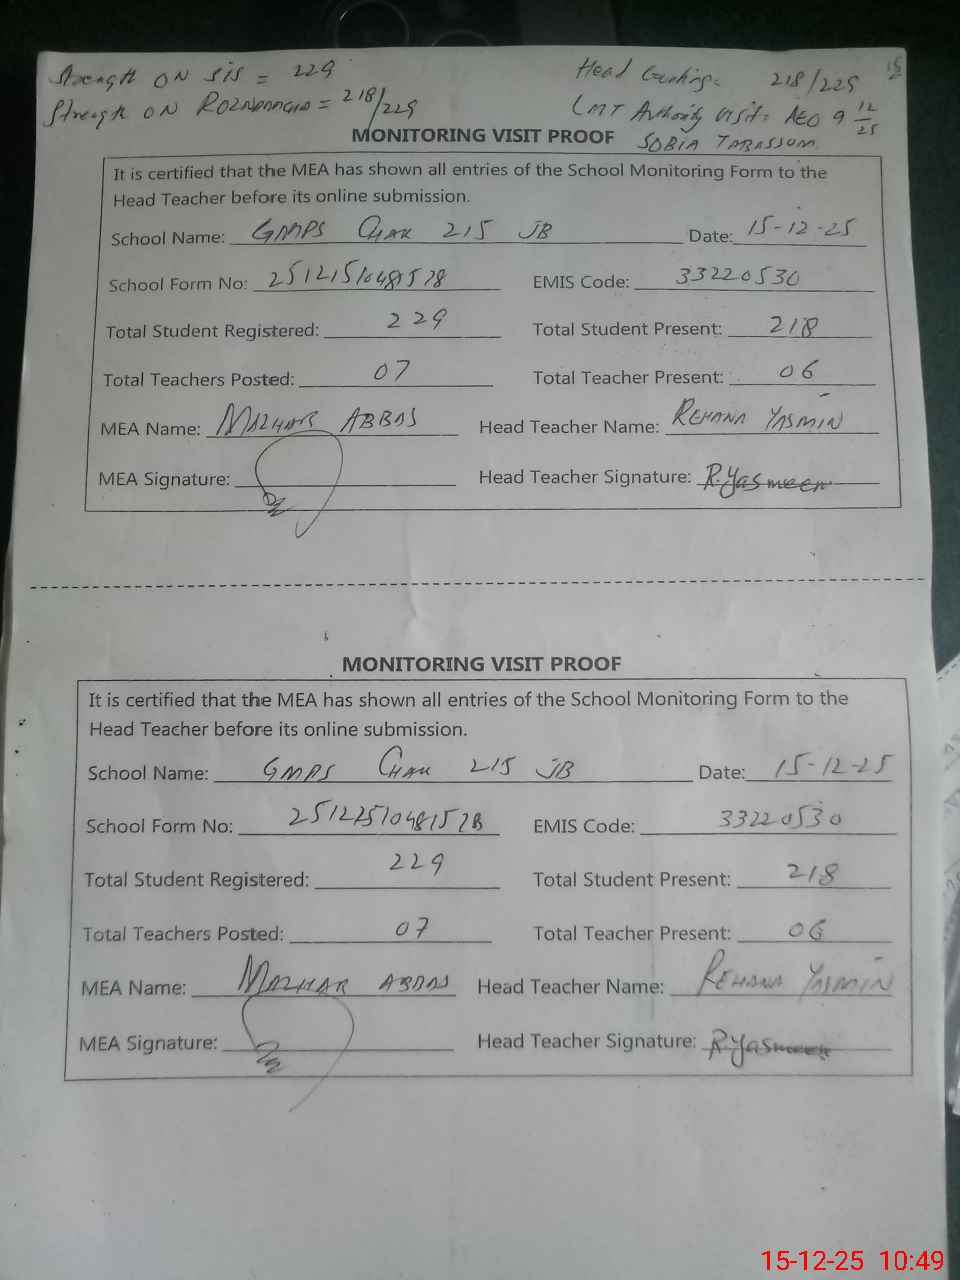 Strength ON SIS = 229
Head Counting = 218/229
Strength ON ROZNAMCHA = 218/229
LMT Authority visit: AEO 9 12/25
SOBIA TABASSUM
MONITORING VISIT PROOF
It is certified that the MEA has shown all entries of the School Monitoring Form to the
Head Teacher before its online submission.
School Name: GMPS CHAK 215 JB Date: 15-12-25
School Form No: 25121510481528 EMIS Code: 33220530
Total Student Registered: 229 Total Student Present: 218
Total Teachers Posted: 07 Total Teacher Present: 06
MEA Name: MAZHAR ABBAS Head Teacher Name: REHANA YASMIN
MEA Signature: Head Teacher Signature: R.Yasmeen
MONITORING VISIT PROOF
It is certified that the MEA has shown all entries of the School Monitoring Form to the
Head Teacher before its online submission.
School Name: GMPS CHAK 215 JB Date: 15-12-25
School Form No: EMIS Code: 33220530
Total Student Registered: 229 Total Student Present: 218
Total Teachers Posted: 07 Total Teacher Present: 06
MEA Name: MAZHAR ABBAS Head Teacher Name: REHANA YASMIN
MEA Signature: Head Teacher Signature: R Yasmeen
15-12-25 10:49